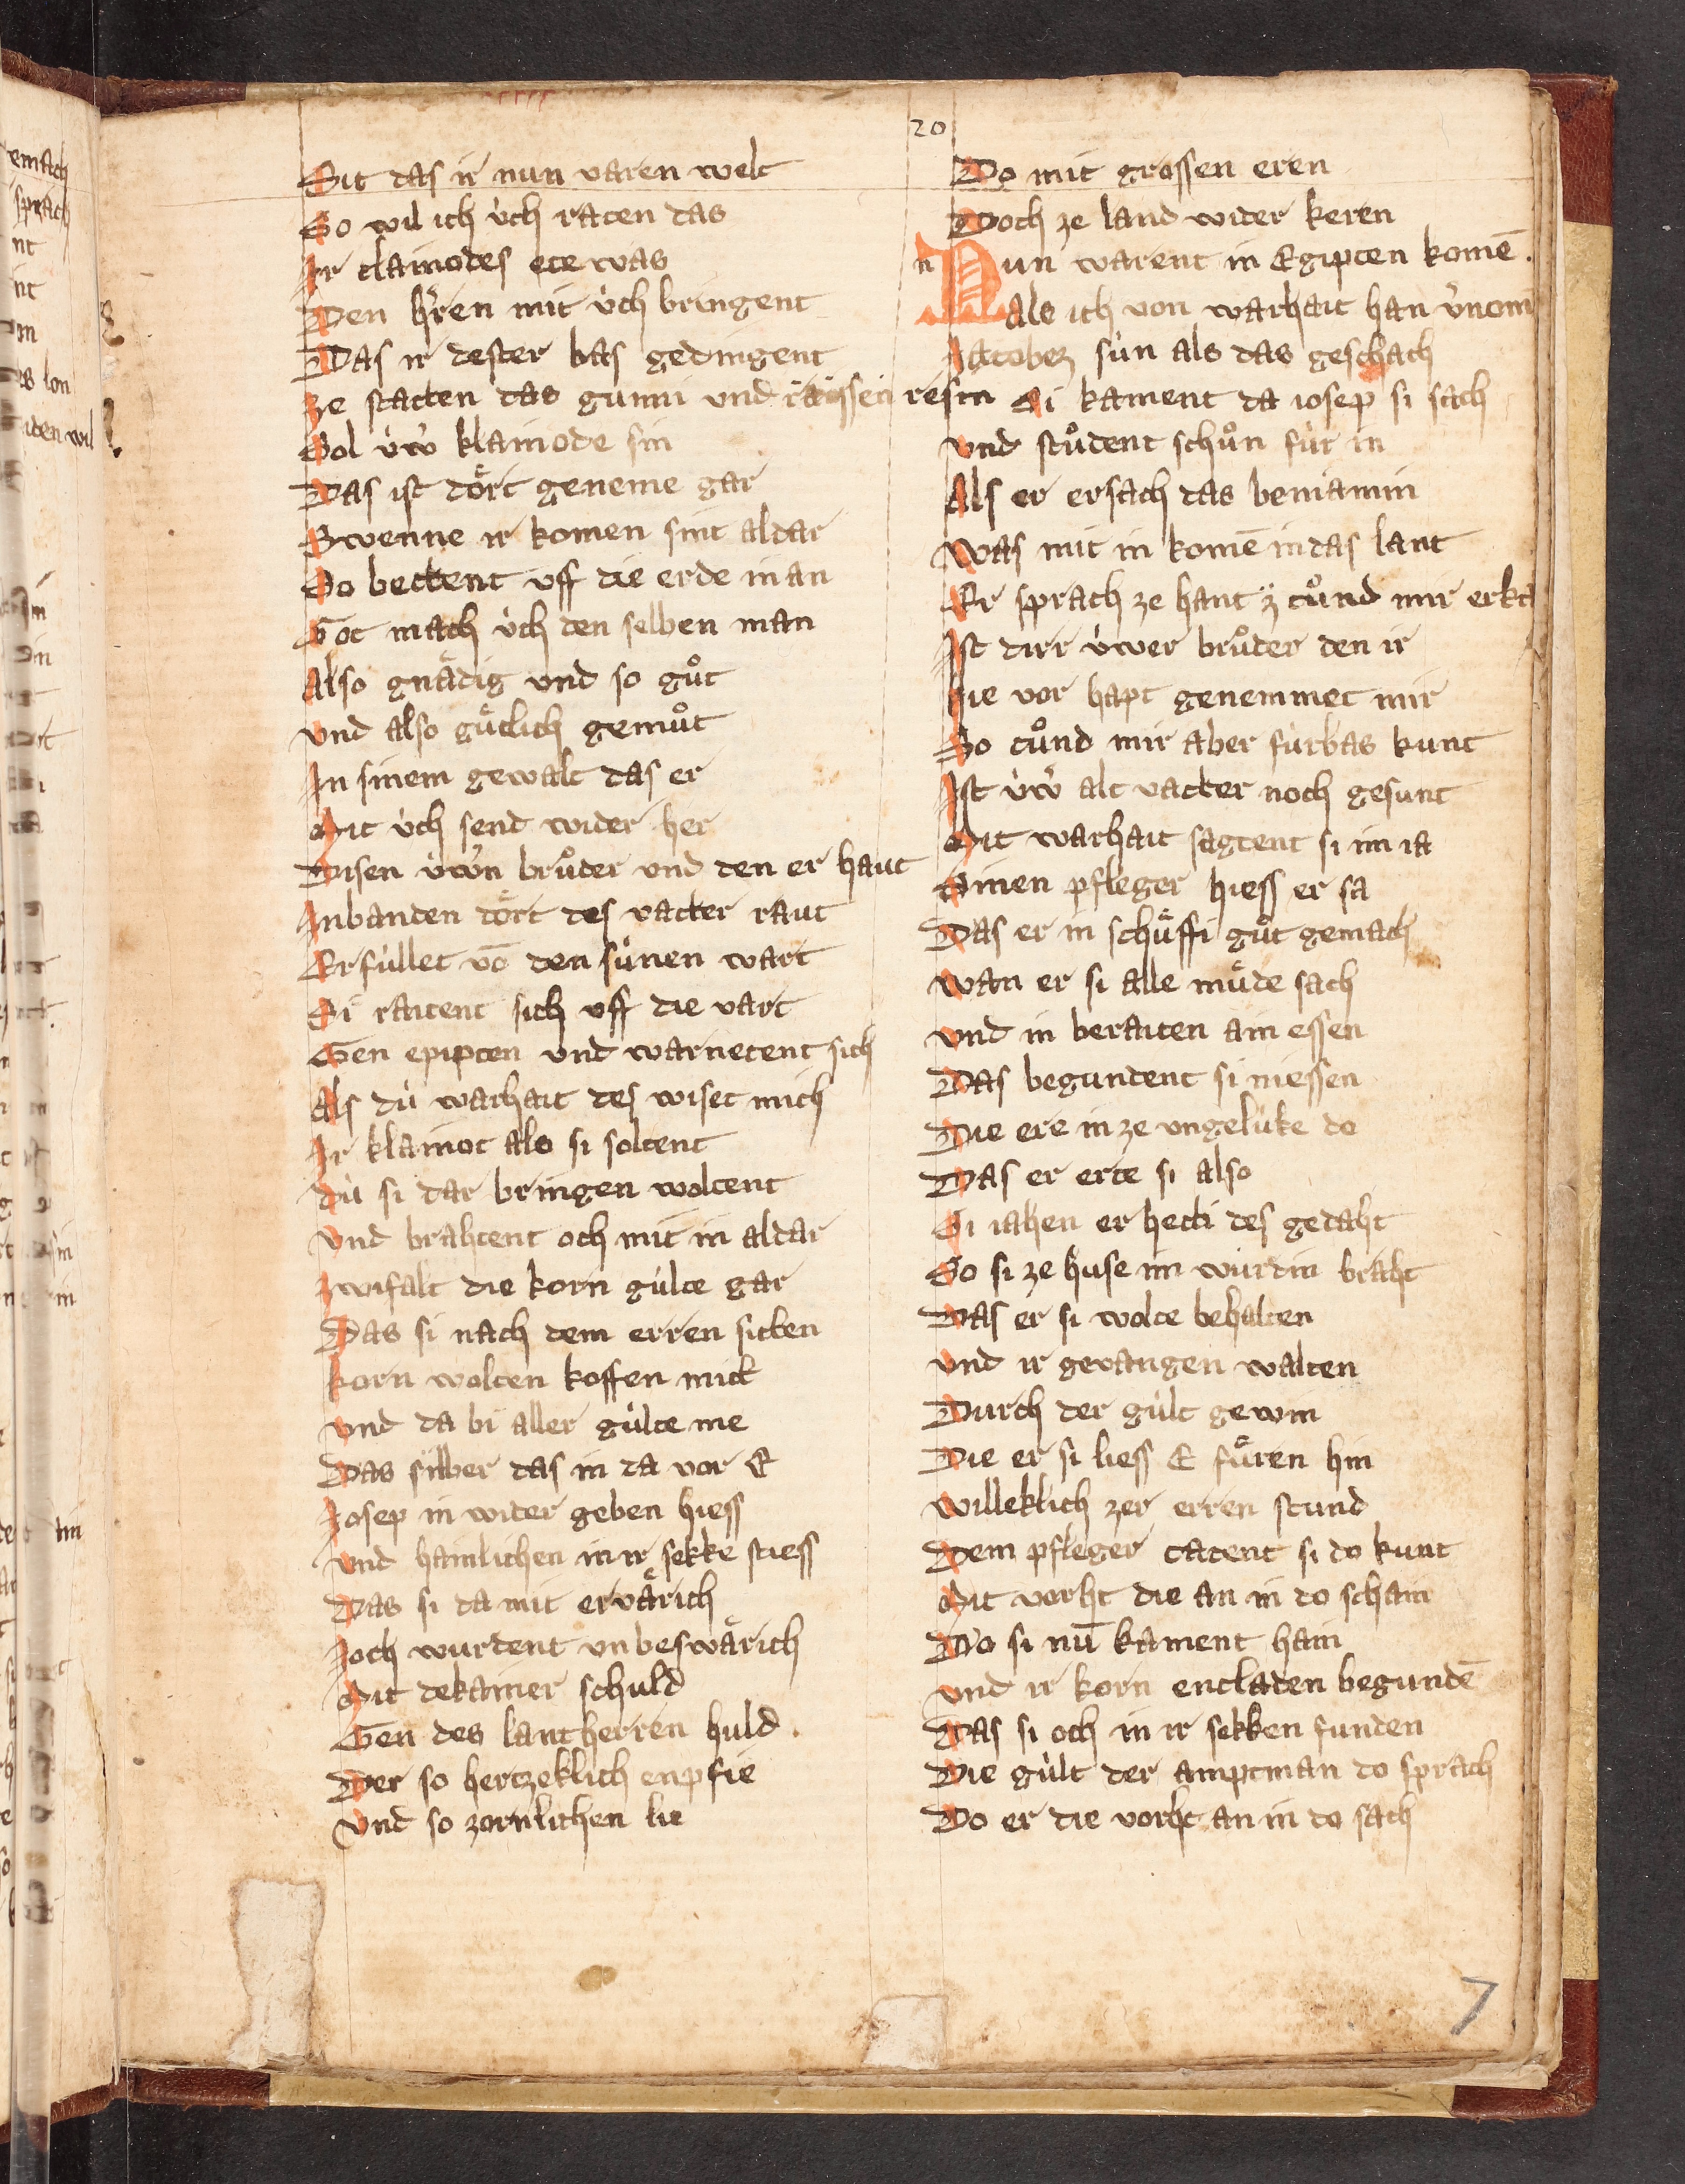 20
Sit das ir nun varen welt
So wil ich u̇ch raten das
Ir clainodes ete was
Den hr̃en mit u̇ch bringent
Das ir dester bas gedingent
ze statten das gummi und räissen resin
Sol u̇w̉ klainode sin
Das ist doͤrt geneme gar
Swenne ir komen sint aldar
So bettent vff die erde in an
Got mach u̇ch den selben man
Also gnaͤdig vnd so guͦt
vnd also guͤtlich gemuͦt
In sinem gewalt das er
Mit u̇ch send wider her
Disen u̇w̉n bruͦder vnd den er haut
In banden doͤrt des vatter raut
Erfu̇llet vō den su̇nen wart
Si raitent sich vff die vart
Gen epipten vnd warnetent sich
Als du̇ warhait des wiset mich
Ir klainot als si soltent
du̇ si dar bringen woltent
vnd brahtent och mit in aldar
zwifalt die korn gu̇lte gar
Das si nach dem erren sitten
korn wolten koffen mitt
vnd da bi aller gu̇lte me
Das silber das in da vor E
Iosep in wider geben hiess
vnd hainlichen in ir sekke stiess
Das si da mit ervaͤrich
Ioch wurdent vnbeswaͤrich
Mit dekainer schuld
Gen des lantherren huld.
Der so hertzeklich enpfie
vnd so zornlichen lie
Do mit grossen eren
Doch ze land wider keren
n Nun warent in Egipten komē.
Als ich von warhait han v̉nom
Iacobez su̇n als das geschach
Si kament da iosep si sach
vnd stuͦdent schuͦn fu̇r in
Als er ersach das beniamin
Was mit in komē in das lant
Er sprach ze hant tuͦnd mir erka
Ist dirr u̇wer bruͦder den ir
hie vor hapt genemmet mir
So tuͦnd mir aber fu̇rbas kunt
Ist u̇w̉ alt vatter noch gesunt
Mit warhait sagtent si im ia
Sinen pfleger hiess er sa
Das er in schuͤffi guͦt gemach
wan er si alle muͤde sach
vnd in beraiten ain essen
Das begundent si niessen
Die ere in ze vngelu̇ke do
Das er erte si also
Si iahen er hetti des gedaht
So si ze huse im wu̇rdin braht
Das er si wolte behalten
vnd ir gevangen walten
Durch der gu̇lt gewin
Die er si liess E fuͤren hin
willeklich zer erren stund
Dem pfleger tatent si do kunt
Mit vorht die an in do schain
Do si nū kament hain
vnd ir korn entladen begundē
Das si och in ir sekken funden
Die gu̇lt der amptman do sprach
Do er die vorht an in do sach
7